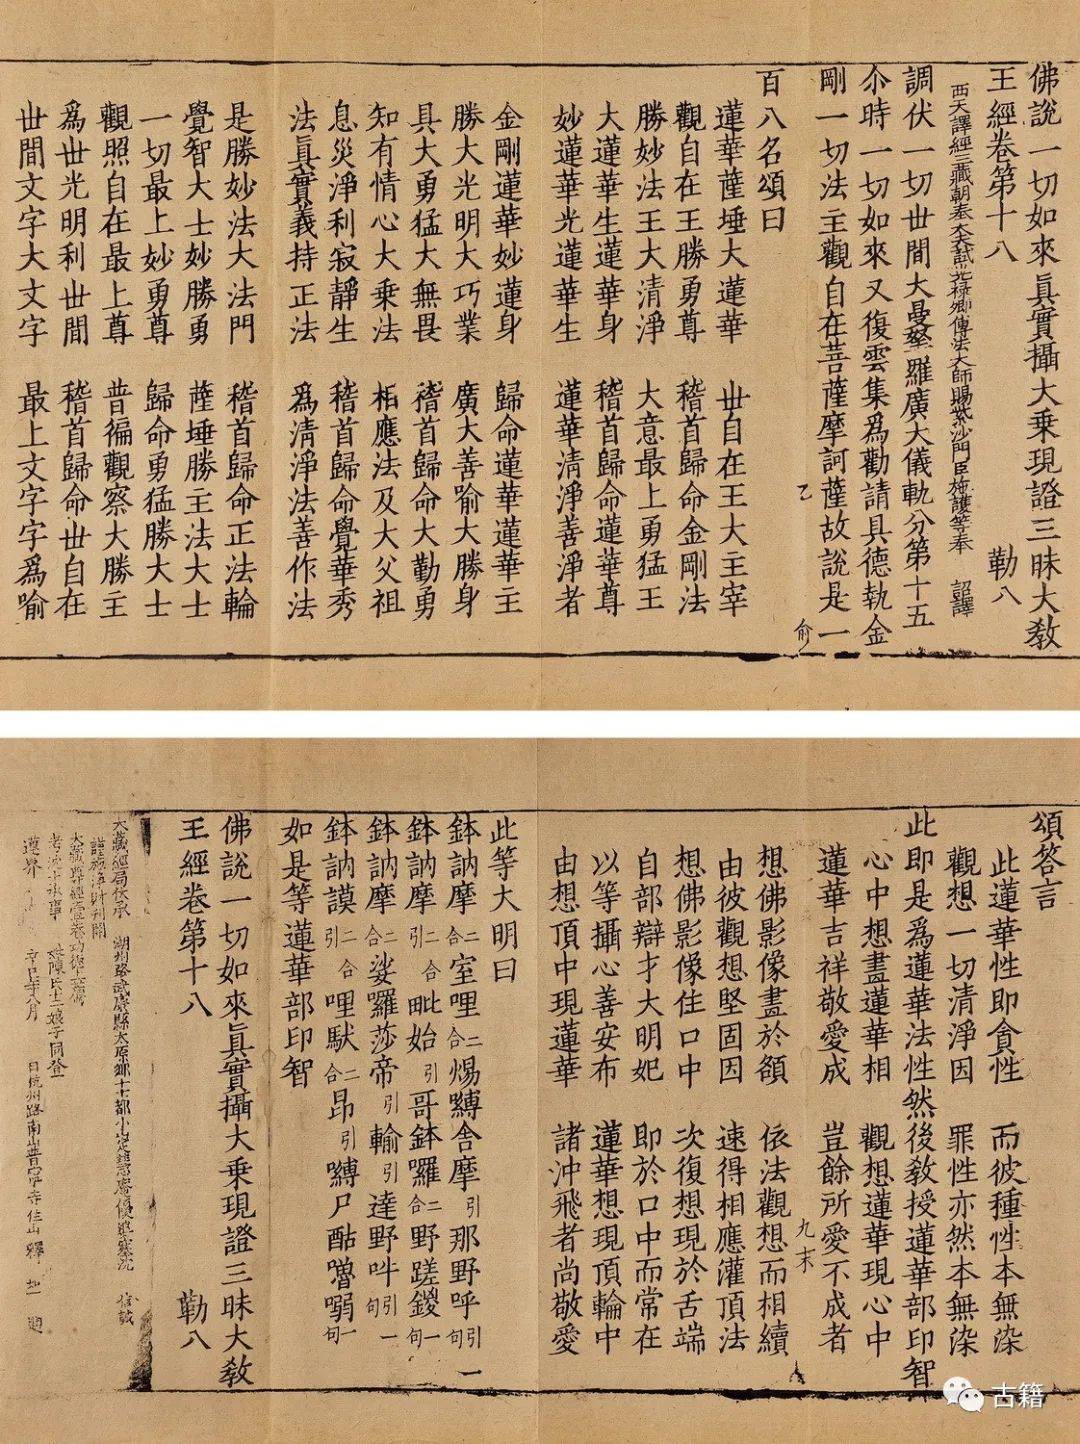 佛說一切如來真實攝大乗現證三昧大教
王經卷第十八 勒八
西天譯經三藏朝奉大夫試光祿卿傳法大師賜紫沙門臣施護等奉 詔譯
調伏一切世間大曼拏羅廣大儀軌分第十五
尒時一切如來又復雲集為勸請具德執金
剛一切法主觀自在菩薩摩訶薩故說是一
乙 俞
百八名頌曰
蓮華薩埵大蓮華 世自在王大主宰
觀自在王勝勇尊 稽首歸命金剛法
勝妙法王大清淨 大意最上勇猛王
大蓮華生蓮華身 稽首歸命蓮華尊
妙蓮華光蓮華生 蓮華清淨善淨者
金剛蓮華妙蓮身 歸命蓮華蓮華主
勝大光明大巧業 廣大善喻大勝身
具大勇猛大無畏 稽首歸命大勤勇
知有情心大乗法 相應法及大父祖
息災淨利寂靜生 稽首歸命覺華秀
法真實義持正法 為清淨法善作法
是勝妙法大法門 稽首歸命正法輪
覺智大士妙勝勇 薩埵勝主法大士
一切最上妙勇尊 歸命勇猛勝大士
觀照自在最上尊 普徧觀察大勝主
為世光明利世間 稽首歸命世自在
世間文字大文字 最上文字字為喻
頌答言
此蓮華性即貪性 而彼種性本無染
觀想一切清淨因 罪性亦然本無染
此即是為蓮華法性然後教授蓮華部印智
心中想畫蓮華相 觀想蓮華現心中
蓮華吉祥敬愛成 豈餘所愛不成者
九末
想佛影像畫於額 依法觀想而相續
由彼觀想堅固因 速得相應灌頂法
想佛影像住口中 次復想現於舌端
自部辯才大明妃 即於口中而常在
以等攝心善安布 蓮華想現頂輪中
由想頂中現蓮華 諸沖飛者尚敬愛
此等大明曰
鉢訥摩二合室哩二合煬嚩舍摩引那野呼引一句
鉢訥摩二合毗始引哥鉢囉二合野蹉鑁一句
鉢訥摩二合娑囉莎帝引輸引達野吽引一句
鉢訥謨二合引哩馱二合昂引嚩尸酤嚕喎一句
如是等蓮華部印智
佛說一切如來真實攝大乗現證三昧大教
王經卷第十八 勒八
大藏經局伏承 湖州路武康縣太原鄉十七都小 信誠
謹施淨財刊開
大藏尊經壹卷功德
八月 日杭州路南山普寧寺住山釋
古籍